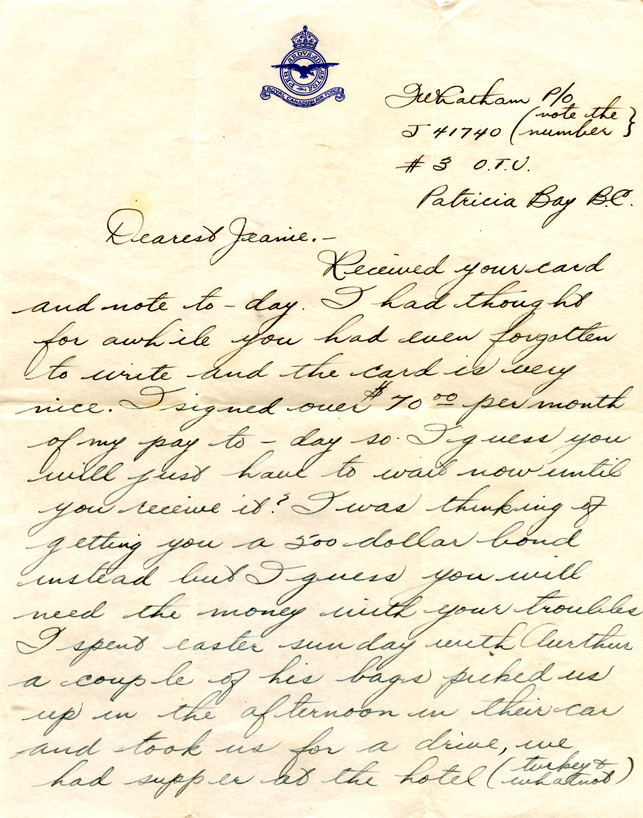 ROYAL CANADIAN AIR FORCE
Whatham P/O
J 41740 (note the number)
# 3 O.T.U.
Patricia Bay B.C.
Dearest Jeanie.-
Received your card
and note to-day. I had thought
for awhile you had even forgotten
to write and the card is very
nice. I signed over $70 00 per month
of my pay to-day so I guess you
will just have to wait now until
you receive it? I was thinking of
getting you a 500 dollar bond
instead but I guess you will
need the money with your troubles
I spent easter sunday with Aurthur
a couple of his bags picked us
up in the afternoon in their car
and took us for a drive, we
had supper at the hotel (turkey & whatnot)